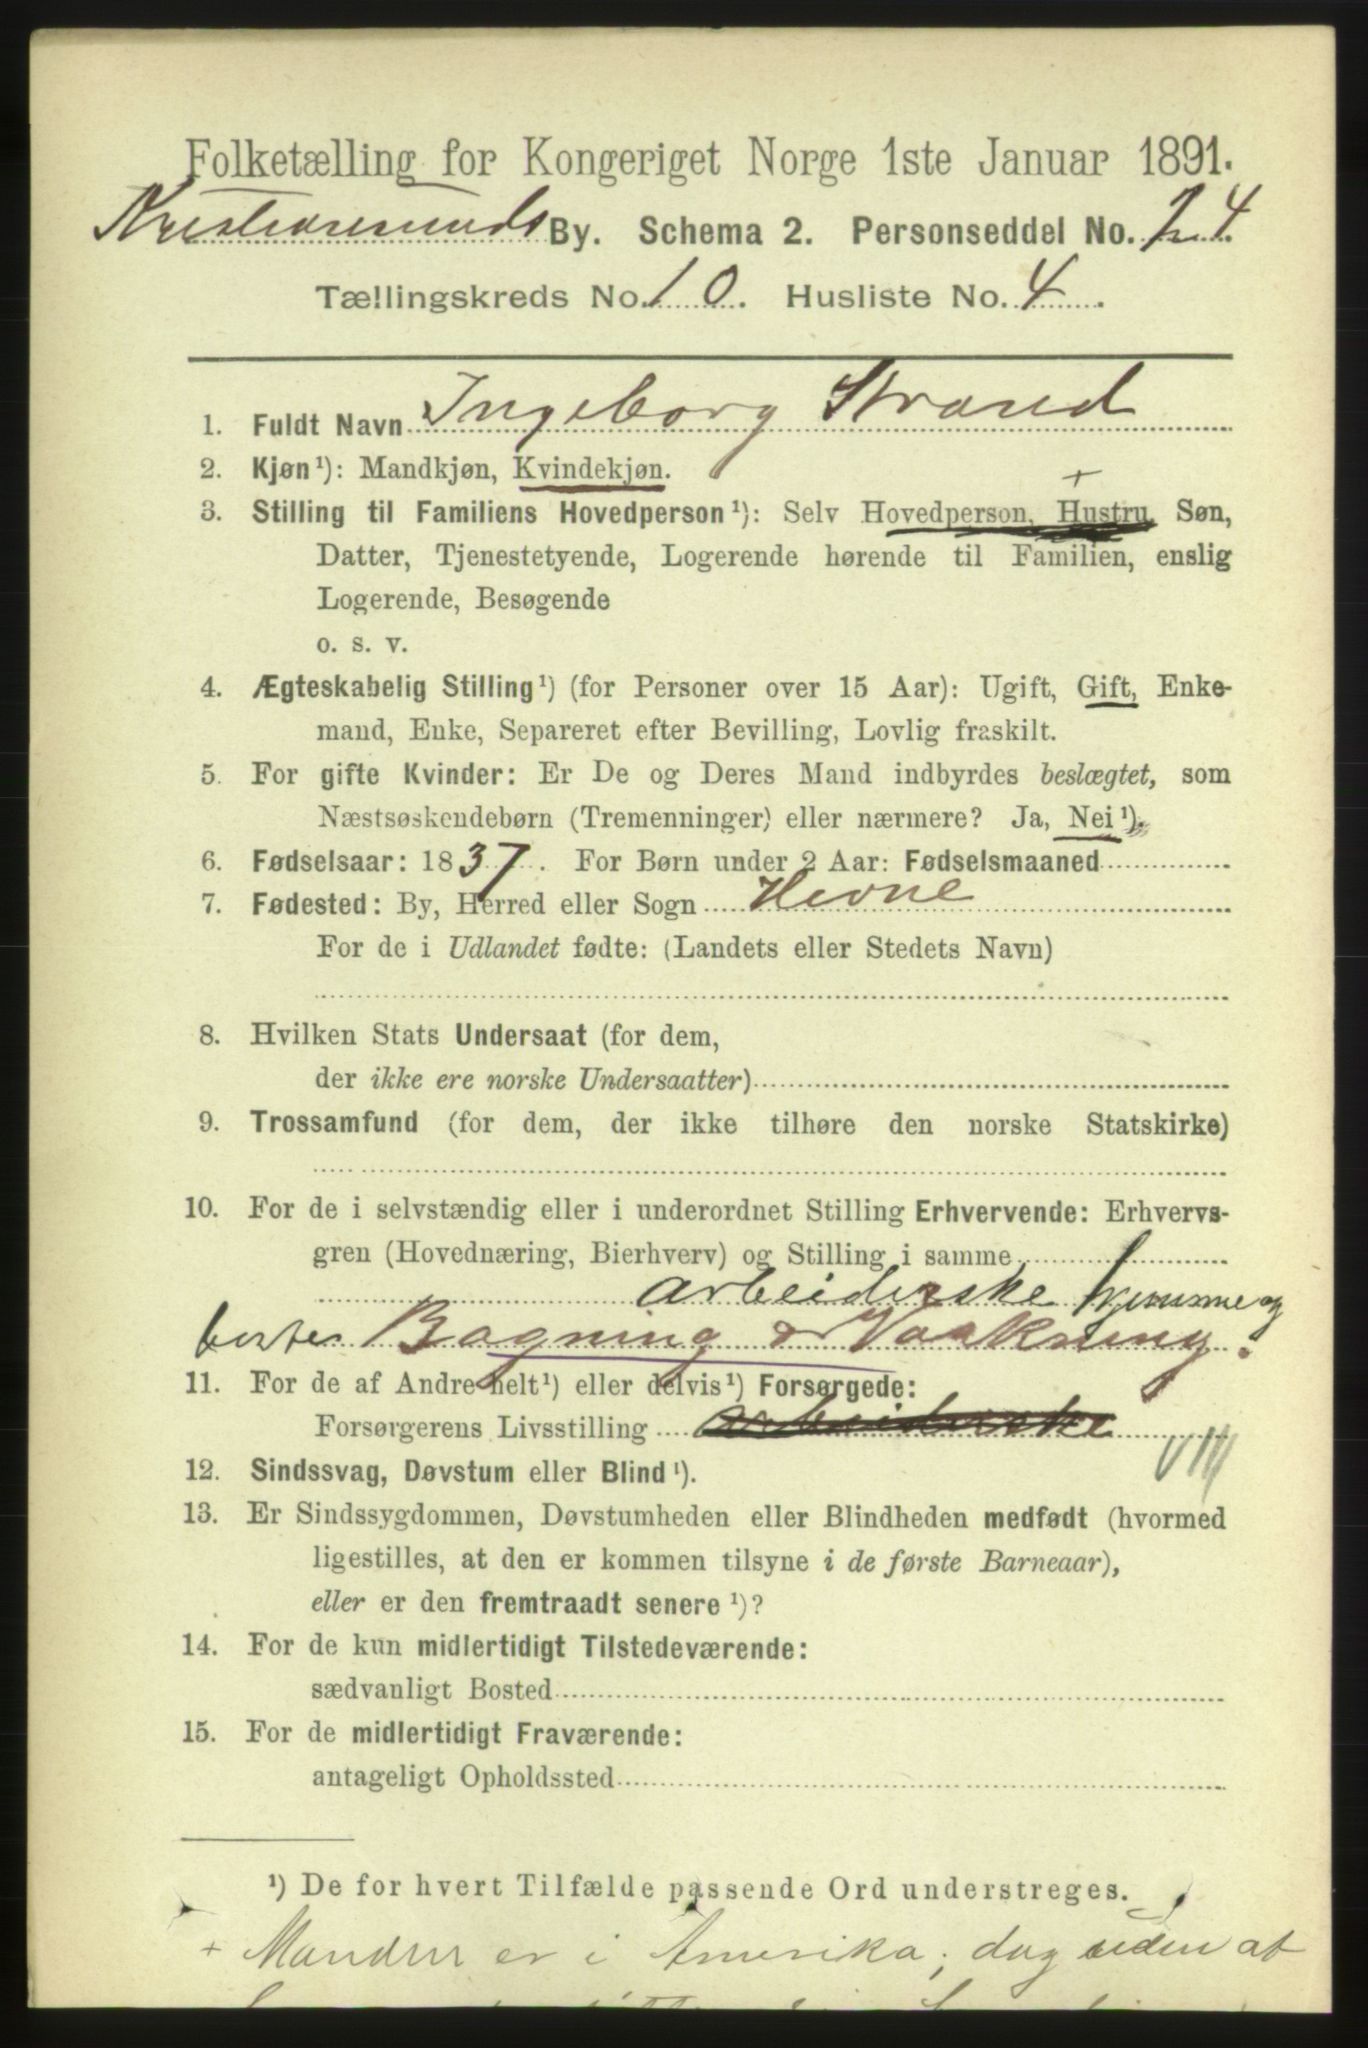 Folketælling for Kongeriget Norge 1ste Januar 1891.
Kristianssunds By. Schema 2. Personseddel No. 24
Tællingskreds No. 10. Husliste No. 4.
1. Fuldt Navn Ingeborg Strand
2. Kjøn¹): Mandkjøn, Kvindekjøn.
+
3. Stilling til Familiens Hovedperson¹): Selv Hovedperson, Hustru, Søn,
Datter, Tjenestetyende, Logerende hørende til Familien, enslig
Logerende, Besøgende
o. s. v.
4. Ægteskabelig Stilling¹) (for Personer over 15 Aar): Ugift, Gift, Enke-
mand, Enke, Separeret efter Bevilling, Lovlig fraskilt.
5. For gifte Kvinder: Er De og Deres Mand indbyrdes beslægtet, som
Næstsøskendebørn (Tremenninger) eller nærmere? Ja, Nei¹).
6. Fødselsaar: 1837. For Børn under 2 Aar: Fødselsmaaned
7. Fødested: By, Herred eller Sogn Hevne
For de i Udlandet fødte: (Landets eller Stedets Navn)
8. Hvilken Stats Undersaat (for dem,
der ikke ere norske Undersaatter)
9. Trossamfund (for dem, der ikke tilhøre den norske Statskirke)
10. For de i selvstændig eller i underordnet Stilling Erhvervende: Erhvervs-
gren (Hovednæring, Bierhverv) og Stilling i samme
arbeiderske hjemme og
borte. Bagning & Vaskning.
11. For de af Andre helt¹) eller delvis¹) Forsørgede:
Forsørgerens Livsstilling arbeiderske
VIII
12. Sindssvag, Døvstum eller Blind¹).
13. Er Sindssygdommen, Døvstumheden eller Blindheden medfødt (hvormed
ligestilles, at den er kommen tilsyne i de første Barneaar),
eller er den fremtraadt senere¹)?
14. For de kun midlertidigt Tilstedeværende:
sædvanligt Bosted
15. For de midlertidigt Fraværende:
antageligt Opholdssted
¹) De for hvert Tilfælde passende Ord understreges.
+ Manden er i Amerika; dog uden at